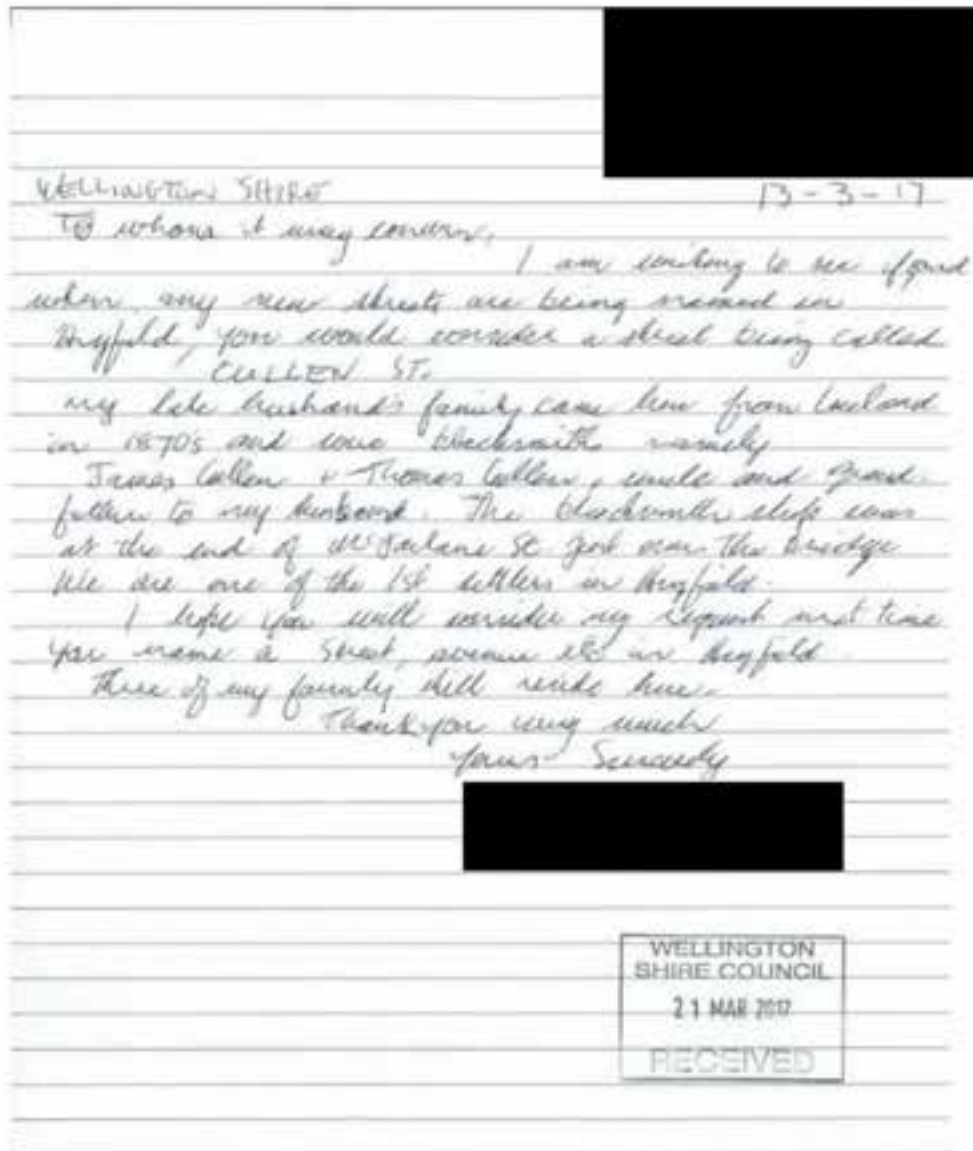 WELLINGTON SHIRE 13-3-17
To whom it may concern,
I am writing to see if and
when any new streets are being named in
Heyfield, you would consider a street being called
CULLEN ST.
my late husband's family came here from Ireland
in 1870's and were blacksmiths namely
James Cullen + Thomas Cullen, uncle and grand-
father to my husband. The blacksmith shop was
at the end of McFarlane St just over the bridge
We are one of the 1st settlers in Heyfield.
I hope you will consider my request next time
you name a Street, avenue etc in Heyfield.
Three of my family still reside here.
Thankyou very much
Yours Sincerely
WELLINGTON
SHIRE COUNCIL
21 MAR 2017
RECEIVED